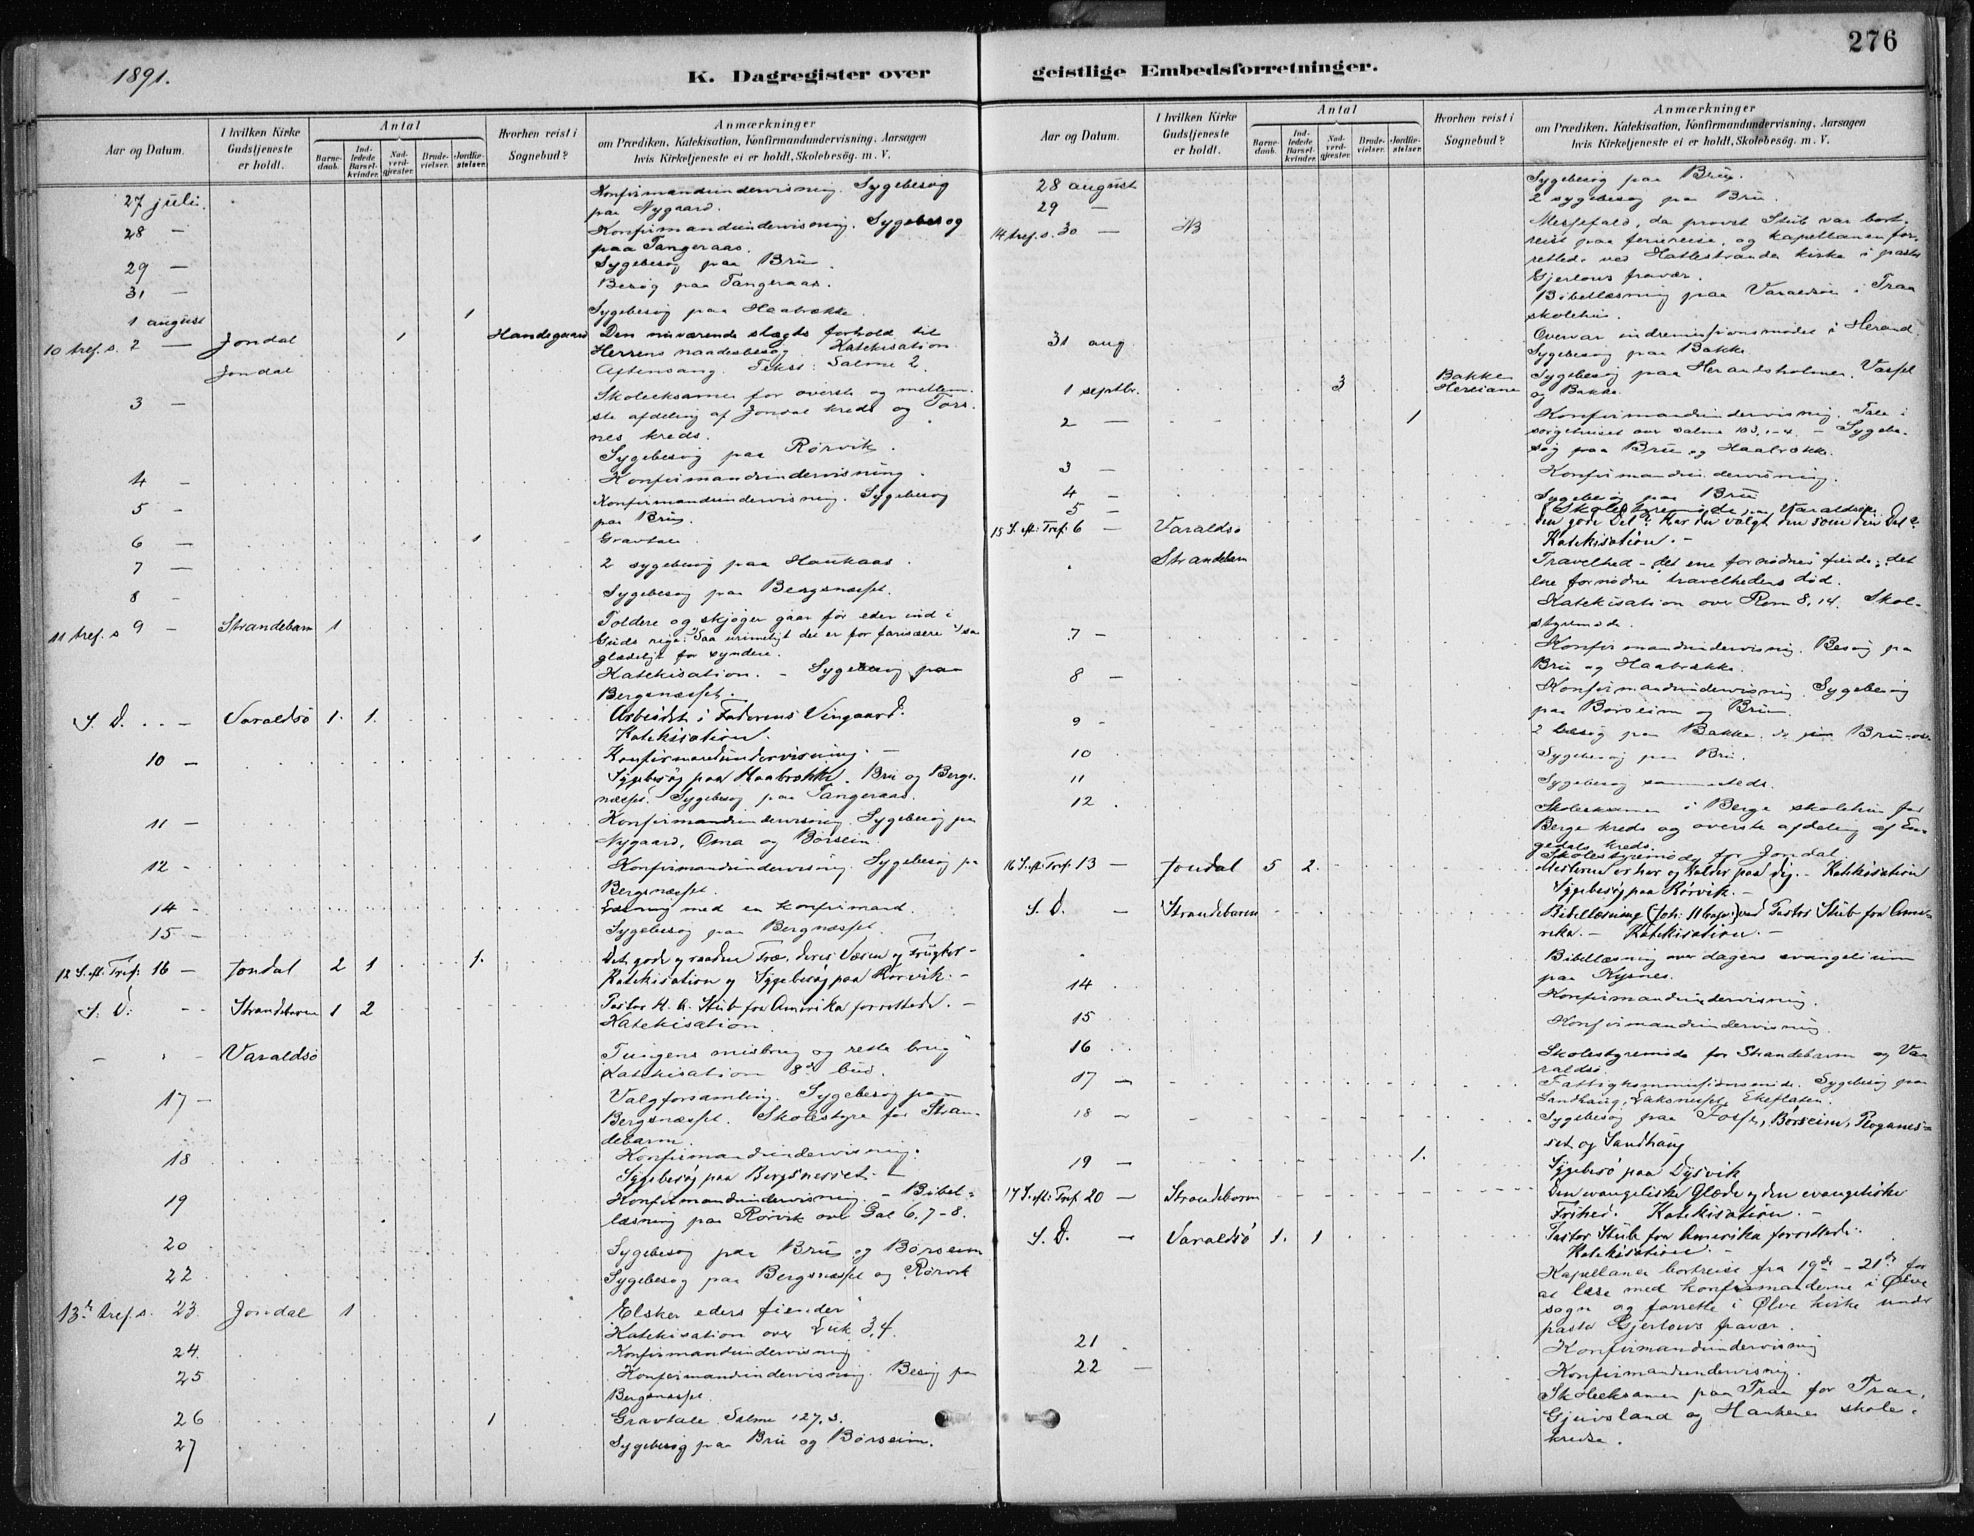 276
1891.
K. Dagregister over geistlige Embedsforretninger.
Aar og Datum.
I hvilken Kirke Gudstjeneste er holdt.
Antal
Barne-daab.
Ind-ledede Barsel-kvinder.
Nad-verd-gjester.
Brude-vielser.
Jordfæ-stelser.
Hvorhen reist i Sognebud?
Anmærkninger
om Prædiken, Katekisation, Konfirmandundervisning, Aarsagen
hvis Kirketjeneste ei er holdt, Skolebesøg. m. V.
27 juli. Konfirmandundervisning. Sygebesøg
paa Nygaard.
28 - Konfirmandundervisning. Sygebesøg
paa Tangeraas.
29 - Sygebesøg paa Bru.
31 - Besøg paa Tangeraas.
1 august 1 Sygebesøg paa Haabrække.
10 tref. s. 2 - Jondal 1 Handegaard Den nuværende slægts forhold til
Herrens naadesbesøg. Katekisation
Jondal Aftensang. Tekst: Salme 2.
3 - Skoleeksamen for øverste og mellem-
ste afdeling af Jondal kreds og Tors-
nes kreds.
Sygebesøg paa Rørvik.
4 - Konfirmandundervisning.
5 - Konfirmandundervisning. Sygebesøg
paa Bru.
6 - 1 Gravtale.
7 - 2 sygebesøg paa Haukaas.
8 Sygebesøg paa Bergsnæsset.
11 tref. s 9 - Strandebarm 1 Toldere og skjøger gaar før eder ind i
Guds rige. Saa urimeligt det er for farisæere, saa
glædeligt for syndere.
Katekisation. - Sygebesøg paa
Bergsnæsset.
S. D. . . - Varaldsø 1. 1. Arbeidet i Faderens Vingaard.
Katekisation.
10 - Konfirmandundervisning. -
Sygebesøg paa Haabrække. Bru og Bergs-
næsset. Sygebesøg paa Tangeraas.
11 - Konfirmandundervisning. Sygebesøg paa
Nygaard, Oma og Børseim.
12 - Konfirmandundervisning. Sygebesøg paa
Bergsnæsset.
14 - Læsning med en konfirmand.
15 - Sygebesøg paa Bergnæsset.
12 S. eft. Tref: 16 - Jondal 2 1 1. Det gode og raadne Træ, deres Væsen og Frugter -
Katekisation og Sygebesøg paa Rørvik. -
S. D: - - Strandebarm 1 2 Pastor H. A. Stub fra Amerika forrettede. -
Katekisation.
- - Varaldsø Tungens misbrug og rette brug
Katekisation 8de bud.
17 - Valgforsamling. Sygebesøg paa
Bergsnæsset. Skolestyre for Stran-
debarm.
18 Konfirmandundervisning.
Sygebesøg paa Bergsnesset. -
19 Konfirmandundervisning. - Bibel-
læsning paa Rørvik over Gal 6, 7-8.
20 Sygebesøg paa Bru og Børseim
22 Sygebesøg paa Bergsnæsset og Rørvik
13de tref. s. 23 Jondal 1 "Elsker eders fiender"
Katekisation over Luk 3,4.
24 Konfirmandundervisning
25 Konfirmandundervisning. Besøg paa
Bergsnæsset.
26 1 Gravtale Salme 127,3.
27 Sygebesøg paa Bru og Børseim.
Aar og Datum.
I hvilken Kirke Gudstjeneste er holdt.
Antal
Barne-daab.
Ind-ledede Barsel-kvinder.
Nad-verd-gjester.
Brude-vielser.
Jordfæ-stelser.
Hvorhen reist i Sognebud?
Anmærkninger
om Prædiken, Katekisation, Konfirmandundervisning, Aarsagen
hvis Kirketjeneste ei er holdt, Skolebesøg. m. V.
28 august Sygebesøg paa Bru.
29 - 2 sygebesøg paa Bru.
14 tref. s. 30 - NB Messefald, da provst Stub var bort-
reist paa feriereise, og kapellanen for-
rettede ved Hatlestrandens kirke i pastor
Gjerløws fravær.
Bibellæsning paa Varaldsøen i Traa
skolehus.
31 aug Overvar indremissionsmødet i Herand.
Sygebesøg paa Bakke.
1 septbr. 3 Bakke Sygebesøg paa Herandsholmen, Vassel
og Bakke.
2 - 1 Konfirmandundervisning. Tale i
sørgehuset over salme 103, 1-4. - Sygebe-
søg paa Bru og Haabrække.
3 - Konfirmandundervisning.
4 - Sygebesøg paa Bru
5 - Skolestyremøde paa Varaldsøen.
15 S. eft: Tref: 6 - Varaldsø Den gode Del? Har du valgt den som din Del?
Katekisation. -
Strandebarm Travelhed - det ene fornødnes fiende; det
ene fornødne travelhedens død.
Katekisation over Rom 8,14. Skole-
styremøde.
7 - Konfirmandundervisning. Besøg paa
Bru og Haabrække.
8 - Konfirmandundervisning. Sygebesøg
paa Børseim og Bru.
9 - 2 besøg paa Bakke
10 Sygebesøg paa Bru.
11 Sygebesøg sammesteds.
12 Skoleeksamen i Berge skolehus for
Berge kreds og øverste afdeling af En-
gedals kreds.
Skolestyremøde for Jondal
16 S. eft Tref 13 - Jondal 5 2. Mesteren er her og kalder paa dig. - Katekisation
Sygebesøg paa Rørvik. -
S. D. - Strandebarm Bibellæsning (Joh: 11 Cap:) ved Pastor Stub fra Ame-
rika. - Katekisation. -
Bibellæsning over dagens evangelium
paa Kysnes.
14 Konfirmandundervisning.
15 Konfirmandundervisning.
16 Skolestyremøde for Strandebarm og Va-
raldsø
17 - Fattigkommissionsmøde. Sygebesøg paa
Sandhaug, Laksnesset, Ekeflaten.
18 - Sygebesøg paa Fosse, Børseim,
og Sandhaug
19 - 1. Sygebesø paa Dysvik
17 S. eft: Tref 20 - Strandebarm Den evangeliske Glæde og den evangeliske
Frihed. Katekisation. -
S. D. - Varaldsø 1. 1 Pastor Stub fra Amerika forrettede.
Katekisation. -
Kapellanen bortreist fra 19de - 21de for
at læse med konfirmanderne i Ølve
sogn og forrette i Ølve kirke under
pastor Gjerløws fravær.
21 Konfirmandundervisning
22 - Konfirmandundervisning.
Skoleeksamen paa Traa for Traa,
Gjuvsland og Haukenes skole-
kredse.